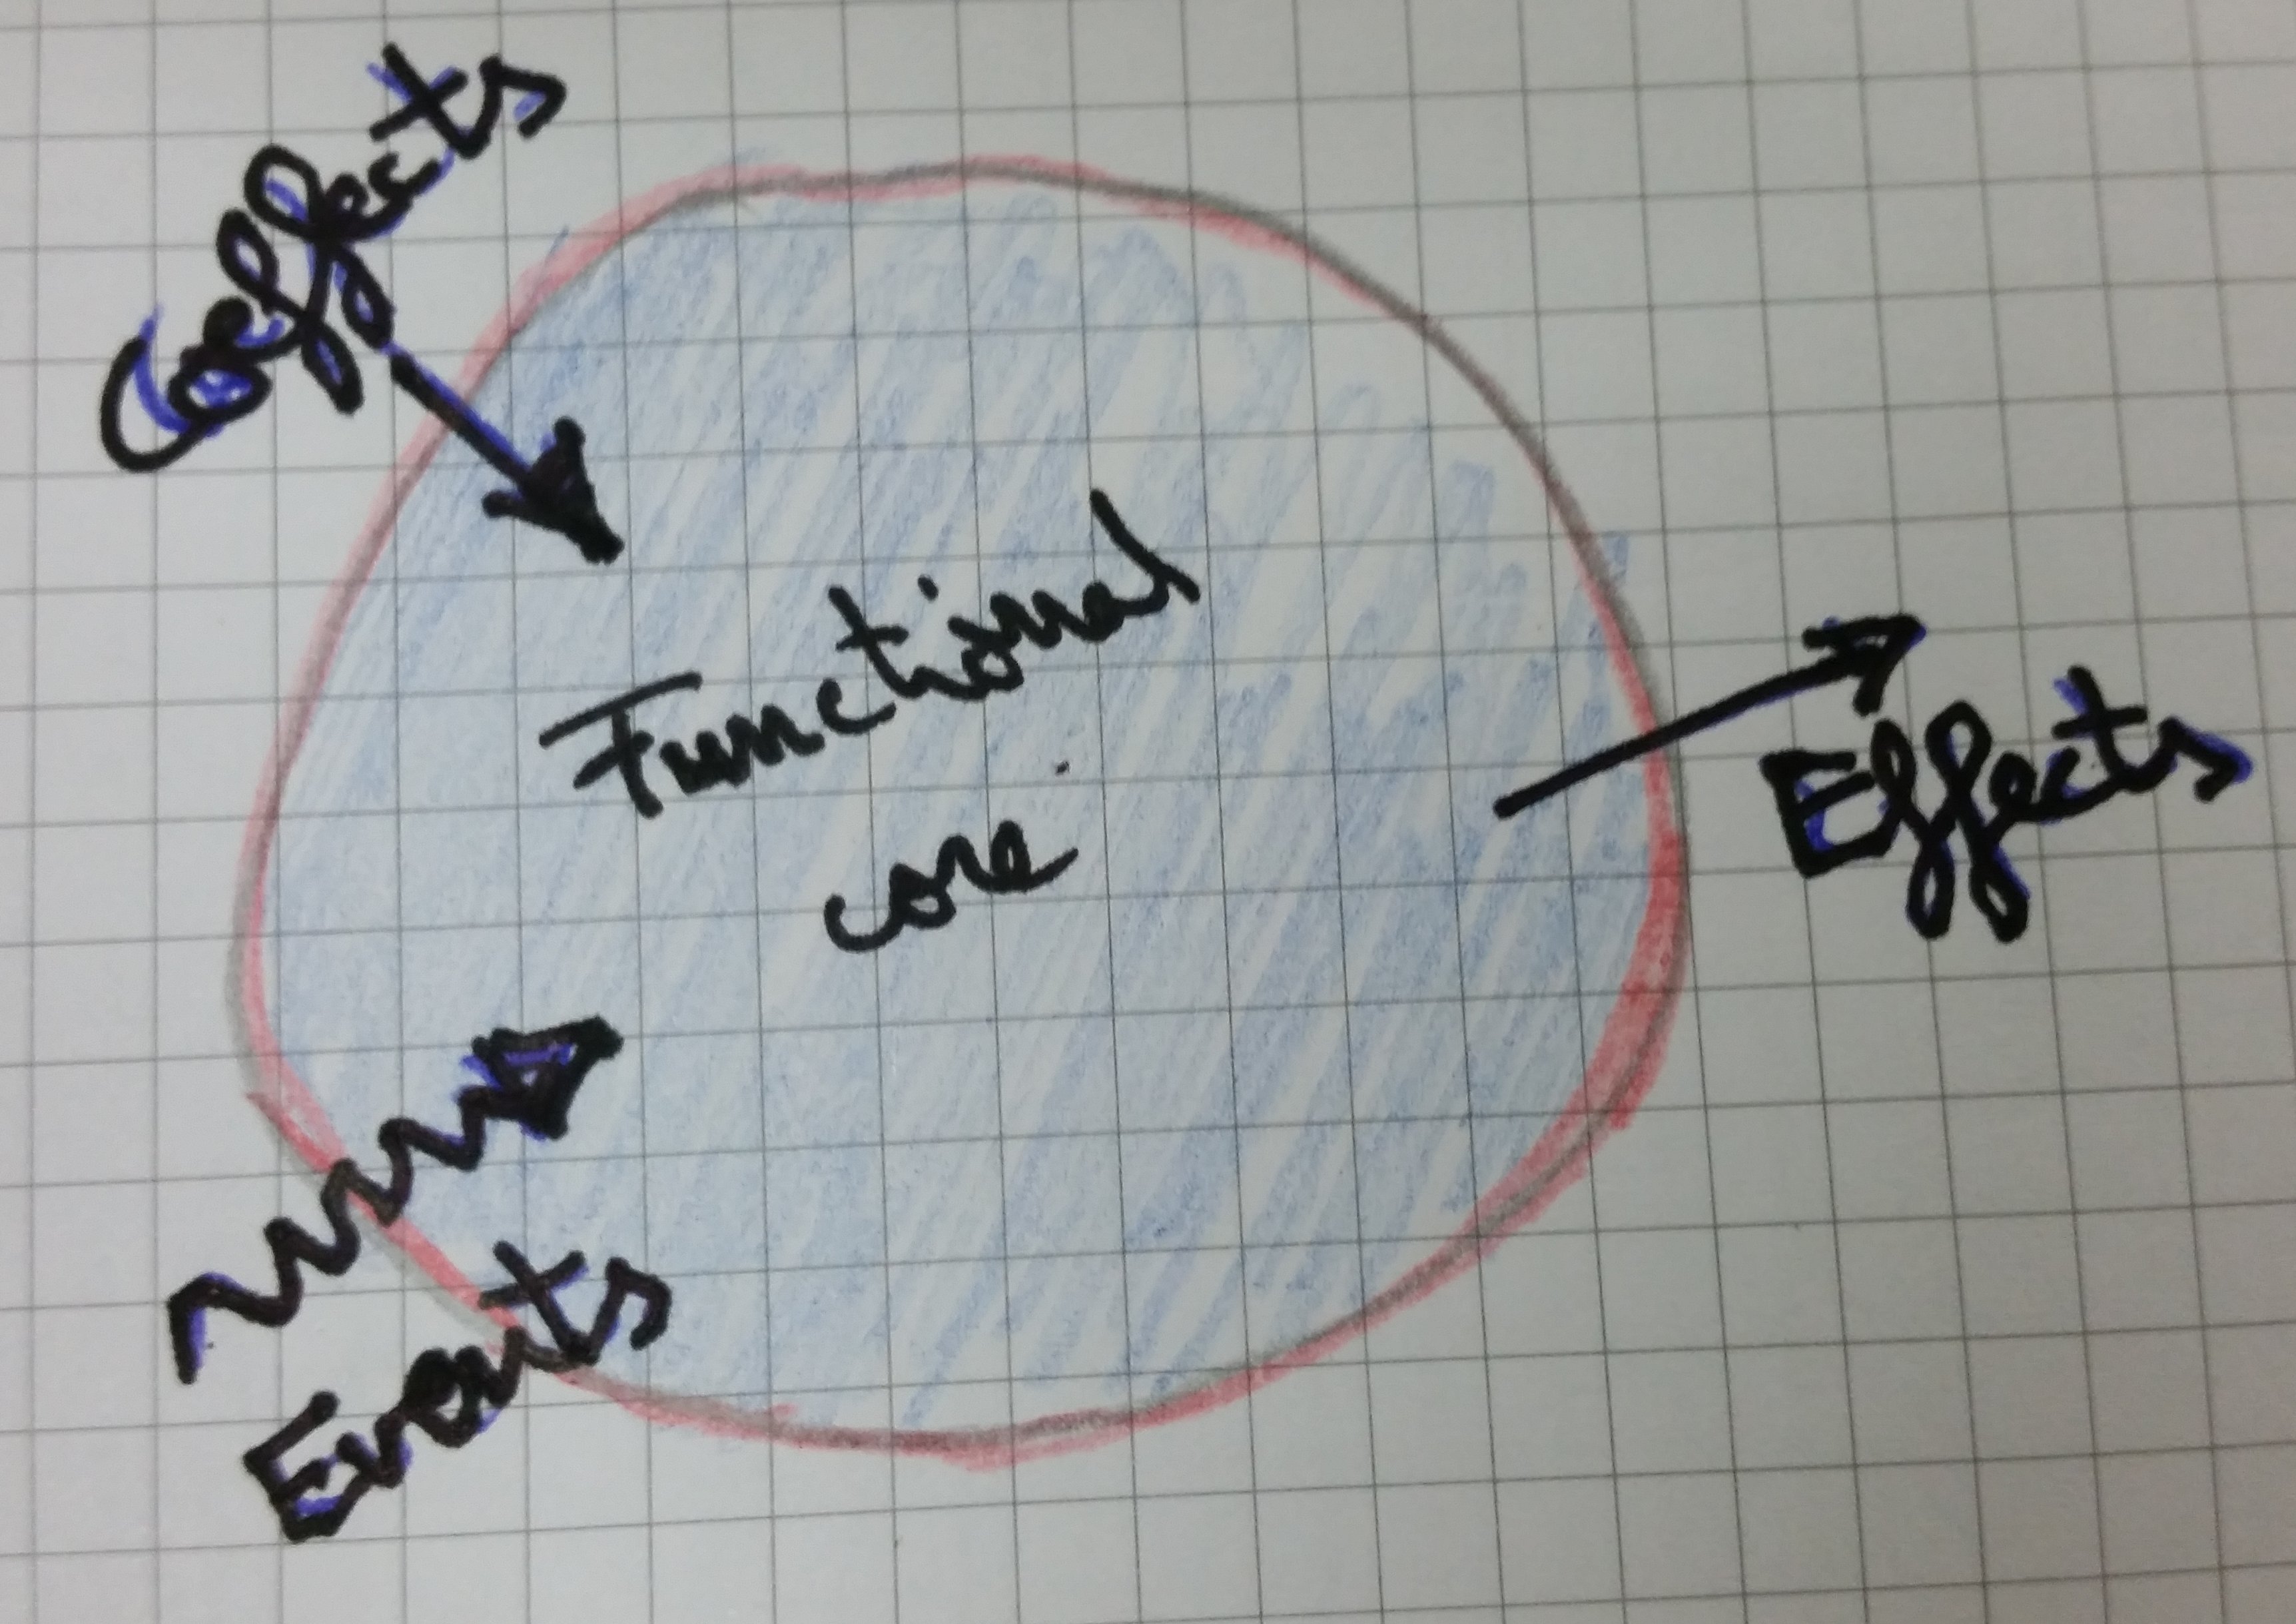 Coeffects
Functional
core
Effects
Events